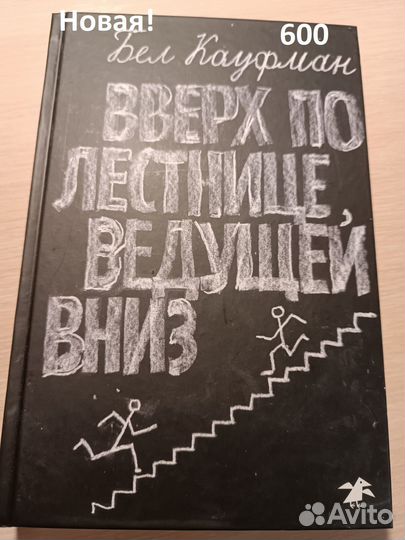 Новая!
600
Бел Кауфман
ВВЕРХ ПО
ЛЕСТНИЦЕ,
ВЕДУЩЕЙ
ВНИЗ
Avito